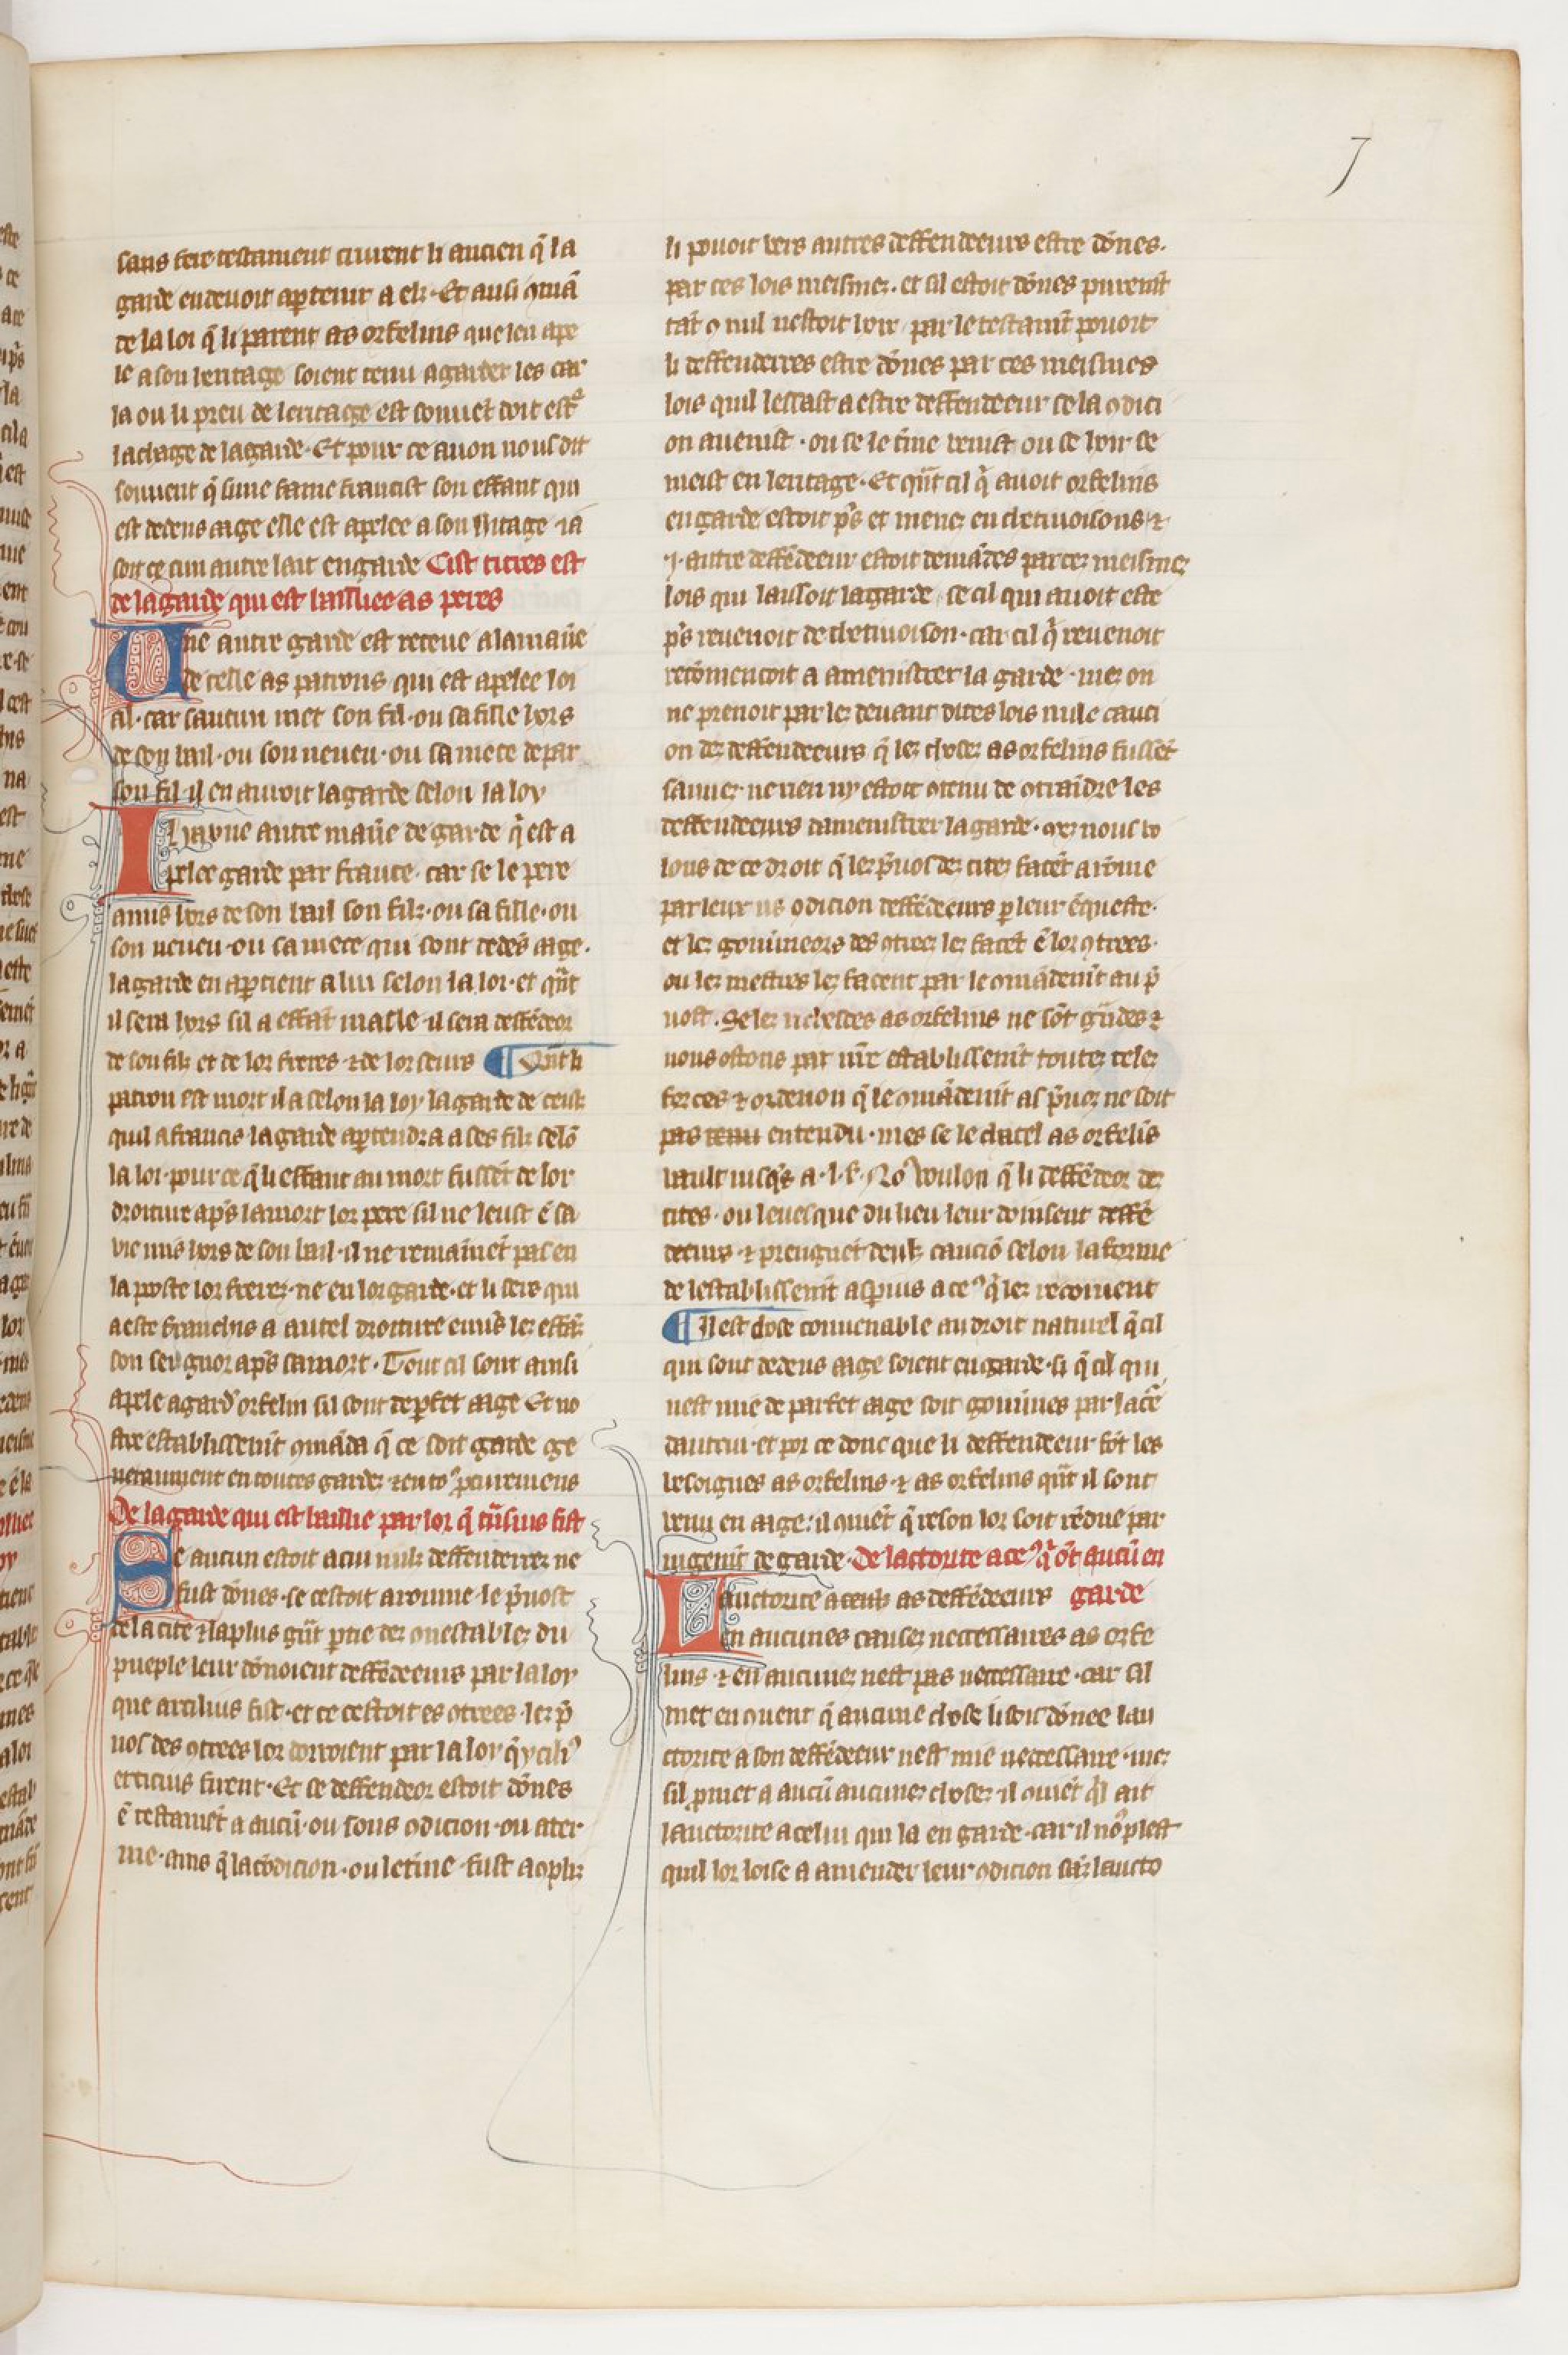 7
sans fere testament cuident li ancien q̃ la
garde en devoit ap̱tenir a elz. Et ausi ꝯmã
de la loi q̃ li parent as orfelins que len ape
le a son leritage soient tenu a garder les car
la ou li preu de leritage est convẽt doit estᵉ
la charge de la garde. Et pour ce avon nous dit
souvent q̃ s une fame franchist son effant qui
est dedens aage elle est apelee a son h̃itage ⁊ ia
soit ce cun autre lait en garde Cist titres est
de la garde qui est laissiee as peres
Une autre garde est receue a la mañe
de celle as patrons qui est apelee loi
al. car saucun met son fil. ou sa fille hors
de son bail. ou son neveu. ou sa niece de par
son fil. il en avroit la garde selon la loy
Il i a une autre mañe de garde q̃ est a
pelee garde par france. car se le pere
a mis hors de son bail son filz. ou sa fille. ou
son neveu. ou sa niece qui sont dedẽs aage.
la garde en ap̱tient a lui selon la loi. et qñt
il sera hors sil a effãt malle il sera deffẽdeor
de son filz et de lor freres ⁊ de lor seurs ¶ Qñt li
patron est mort il a selon la loy la garde de ceus
quil a francis la garde ap̱tendra a ses filz selõ
la loi. pour ce q̃ li effant au mort fussẽt de lor
droiture ap̃s la mort lor pere sil ne leust ẽ sa
vie mis hors de son bail. il ne remainẽt pas en
la poste lor freres. ne en lor garde. et li sers qui
a este franchis a autel droiture envs̃ les effãz
son seignor ap̃s sa mort. Tout cil sont ainsi
apele a gard̾ orfelin sil sont de p̱fet aage Et no
stre establissemt̃ ꝯmãda q̃ ce soit garde ge
neraument en toutes gardes ⁊ en toꝰ p̱curemens
De la garde qui est baillie par lor q̃ iũsius fist
Se aucun estoit a cui nulz deffenderres ne
fust dõnes. se cestoit a romme. le p̃vost
de la cite ⁊ la plus gñt p̱tie des ꝯnestables du
pueple leur dõnoient deffẽdeeurs par la loy
que artilius fist. et ce cestoit es ꝯtrees. les p̃
vos des ꝯtrees lor donroient par la loy q̃ ycilꝰ
et ticius firent. Et se deffendeor estoit dõnes
ẽ testamẽt a aucũ. ou sous ꝯdicion. ou a ter
me. ains q̃ la cõdicion. ou le t̾me fust aꝯpliz
li pouoit vers autres deffendeeurs estre dõnes.
par ces lois meismez. et sil estoit dõnes puremt̃
tãt ꝯ nul nestoit hoir par le testamt̃ pouoit
li deffenderres estre dõnes par ces meismes
lois quil lessast a estre deffendeeur se la ꝯdici
on avenist. ou se le t̾me venist ou se hoir se
meist en leritage. Et qñt cil q̃ avoit orfelins
en garde estoit p̃s et mene en chetivoisons ⁊
.j. autre deffẽdeeur estoit demãdes par cez meismez
lois qui laissoit la garde. se cil qui avoit este
p̃s revenoit de chetivoison. car cil q̃ revenoit
recõmencoit a amenistrer la garde. mez on
ne prenoit par lez devant dites lois nule cauci
on dez deffendeeurs q̃ lez choses as orfelins fussẽt
sauvez. ne rien ny estoit ꝯtenu de ꝯtraĩdre les
deffendeeurs damenistrer la garde. mez nous vo
lons de ce droit q̃ lez p̃vos dez citez facẽt a rome
par leur us ꝯdicion deffẽdeeurs p̱ leur ẽqueste.
et lez gouv̾neors des ꝯtrees lez facẽt ẽ lor ꝯtrees.
ou lez mestres lez facent par le ꝯmãdemt̃ au p̃
vost. Se lez richesces as orfelins ne sõt gñdes ⁊
nous ostons par nr̃e establissemt̃ toutez celez
forces ⁊ ordenon q̃ le ꝯmãdemt̃ as p̃vos ne soit
pas tenu entendu. mes se le chatel as orfelĩs
vault iusq̃s a .l. l'. Noꝰ voulon q̃ li deffẽdeor dez
cites. ou levesque du lieu leur doinsent deffẽ
deeurs. ⁊ prengnẽt deulz cauciõ selon la forme
de lestablissemt̃ as p̱rius a ceꝰ q̃ lez recoivent
¶ Il est chose convenable au droit naturel q̃ cil
qui sont dedens aage soient en garde. si q̃ cil qui
nest mie de parfet aage soit gouv̾nes par lacẽ
dautrui. et por ce donc que li deffendeeur fõt les
besoignes as orfelins. ⁊ as orfelins qñt il sont
venu en aage: il ꝯviẽt q̃ reson lor soit rẽdue par
iugemt̃ de garde. De lactorite a ceꝰ q̃ õt aucũ en
Lauctorite a ceulz as deffẽdeeurs garde
en aucunes causes neccessaires as orfe
lins ⁊ en aucunes nest pas neccessaire. car sil
met en ꝯvent q̃ aucune chose li soit dõnee lau
ctorite a son deffẽdeeur nest mie neccessaire. mez
sil p̱met a aucũ aucunes choses. il ꝯviẽt q̃l ait
lauctorite a celui qui la en garde. car il noꝰ plest
quil lor loise a amender leur ꝯdicion sãz laucto